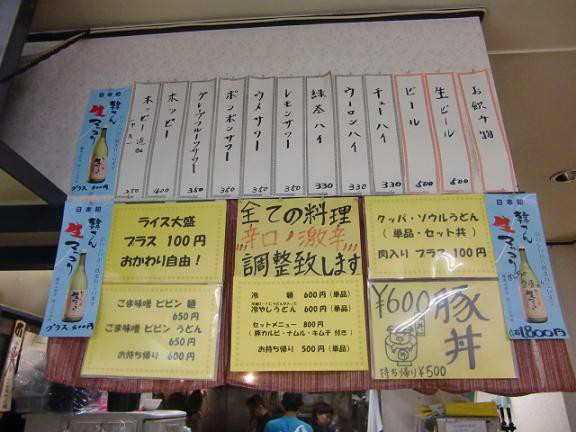 お飲み物
生ビール
500
ビール
500
チューハイ
330
ウーロンハイ
330
緑茶ハイ
330
レモンサワー
350
ウメサワー
350
ポンポンサワー
350
グレープフルーツサワー
350
ホッピー
400
ホッピー追加
250
日本初
韓さん
生マッコリ
グラス 500円
日本初
韓さん
生マッコリ
グラス 500円
ライス大盛
プラス 100円
おかわり自由!
ごま味噌 ビビン 麺
650円
ごま味噌 ビビン うどん
650円
お持ち帰り 600円
全ての料理
辛口・激辛
調整致します
冷 麺 600円(単品)
冷やしうどん 600円(単品)
セットメニュー 800円
(豚カルビ・ナムル・キムチ 付き)
お持ち帰り 500円(単品)
クッパ・ソウルうどん
(単品・セット共)
肉入り プラス 100円
¥600 豚丼
持ち帰り¥500
日本初
韓さん
生マッコリ
1800円